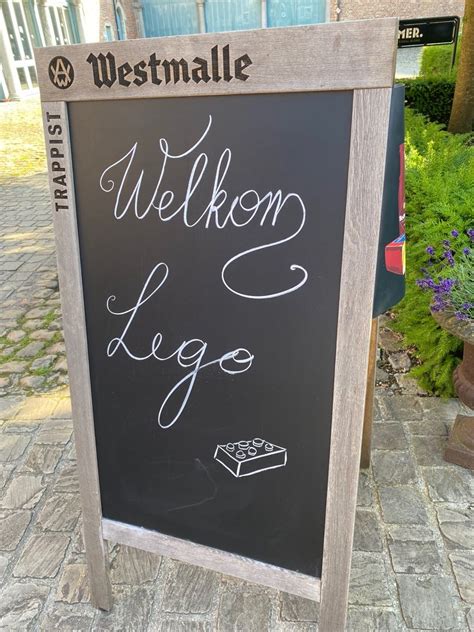 Westmalle
TRAPPIST
Welkom
Lego
MER.